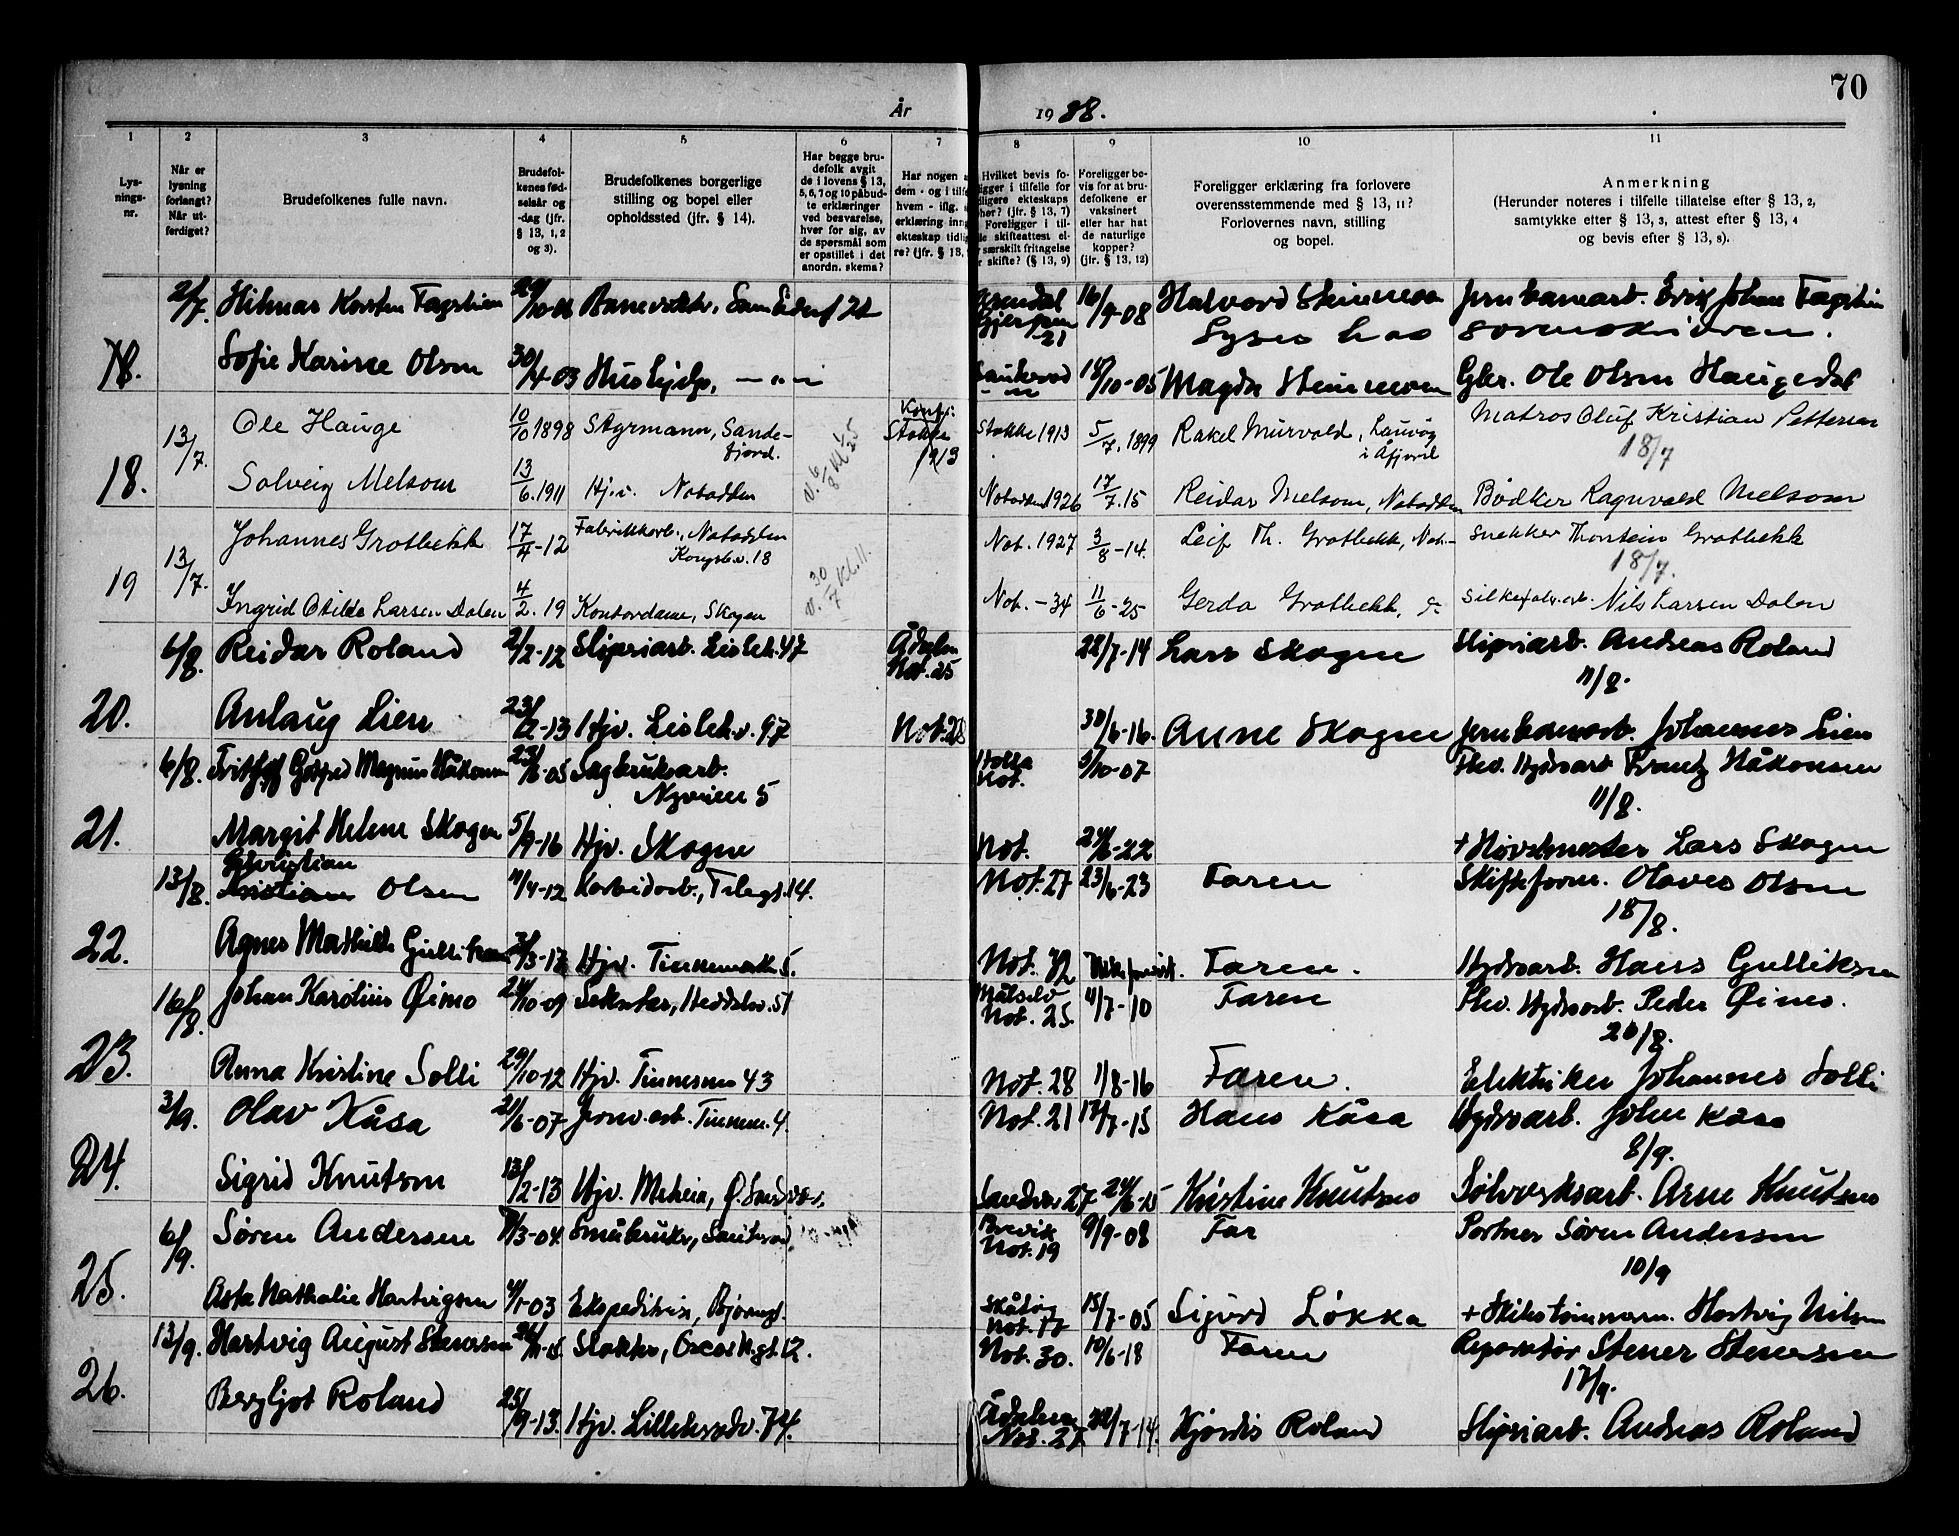 70
År 1938.
1 2 3 4 5 6 7 8 9 10 11
Lys-
nings-
nr.
Når er
lysning
forlangt?
Når ut-
ferdiget?
Brudefolkenes fulle navn.
Brudefol-
kenes fød-
selsår og
-dag (jfr.
§ 13, 1, 2
og 3).
Brudefolkenes borgerlige
stilling og bopel eller
opholdssted (jfr. § 14).
Har begge bru-
defolk avgit
de i lovens § 13,
5, 6, 7 og 10 påbud-
te erklæringer
ved besvarelse,
hver for sig, av
de spørsmål som
er opstillet i det
anordn. skema?
Har nogen
dem - og i tilf
hvem - iflg.
erklæring inn
ekteskap tidli
re? (jfr. § 13,
Hvilket bevis fo-
ligger i tilfelle for
dligere ekteskaps
her? (jfr. § 13, 7)
Foreligger i til-
le skifteattest el-
særskilt fritagelse
r skifte? (§ 13, 9)
Foreligger be-
vis for at bru-
defolkene er
vaksinert
eller har hat
de naturlige
kopper?
(jfr. § 13, 12)
Foreligger erklæring fra forlovere
overensstemmende med § 13, 11?
Forlovernes navn, stilling
og bopel.
Anmerkning
(Herunder noteres i tilfelle tillatelse efter § 13, 2,
samtykke efter § 13, 3, attest efter § 13, 4
og bevis efter § 13, 8).
2/7. Hilmar Karsten Fagstien Banevokter, 16/9-08 Halvord Steinmoen Jernbanearb. Erik Johan Fagstien
Gjerpen
21
Sofie Karine Olsen 30/4-03 Hushjelp, Sauherad 18/10-05 Magda Steinmoen Gbr. Ole Olsen Haugedal
18. 13/7. Ole Hauge 10/10 1898 Styrmann, Sande-
fjord. Konf. Stokke 1913 Stokke 1913 5/7. 1899 Rakel Murvold, Lauvøy
i Åfjord Matros Oluf Kristian Pettersen
18/7
v. 6/8 kl
Solveig Melsom 13/6. 1911 Hj.v. Notodden Notodden 1926 17/7. 15 Reidar Melsom, Notodden Bødker Ragnvald Melsom
19 13/7. Johannes Grotbekk 17/4-12 Fabrikkarb., Notodden
Kongsb.v. 18 Not. 1927 3/8-14. Leif Th. Grotbekk, Not.- Snekker Thorstein Grotbekk
18/7.
v. 30/7 kl. 11.
Ingrid Otilde Larsen Dalen 4/2. 19 Kontordame, Skogen Not. -34 11/6-25 Gerda Grotbekk, Nils Larsen Dalen
20. 6/8. Reidar Roland 2/2-12 Sliperiarb. Lislek. 47 Ådalen
Not. 25 22/7-14 Lars Skogen Sliperiarb. Andreas Roland
11/8.
Anlaug Lien 23/2-13 Hjv. Lislek.v. 97 Not. 28 30/6-16. Anne Skogen Jernbanearb. Johannes Lien
21. 6/8. Magnus Håkonsen 23/6-05 Sagbruksarb.
Nyveien 5 Holla
Not. 5/10-07 Fhv. Hydroarb Frantz Håkonsen
11/8.
Margit Helene Skogen 5/9-16 Hjv. Skogen Not. 24/6-22 + Høvelmester Lars Skogen
22. 13/8. Christian
Kristian Olsen 11/4-12 Karbidarb., Telegt. 14. Not. 27 23/6-23 Faren Skifteform. Olaves Olsen
18/8.
Agnes Mathilde Gulliksen Hjv. Tinnemark 5. Not. 32 Faren. Hydroarb. Hans Gulliksen
23. 16/8. Johan Karolius Øimo 24/10-09 Sekretær, Heddalsv. 51 Målselv
Not. 25. 11/7-10 Faren Fhv. Hydroarb. Peder Øimo.
20/8.
Anna Kristine Solli 29/10-12 Hjv. Tinnesmo 43 Not. 28 1/8-16 Faren. Elektriker Johannes Solli
24. 3/9. Olav Kåsa 21/6-07 Jernv. arb. Tinnem. 4. Not. 21 17/7-15 Hans Kåsa Hydroarb. John Kåsa
8/9.
Sigrid Knutsen 13/2-13 Hjv. Meheia, Ø. Sandsvær. Sandsvær 27 24/6-15 Kristine Knutsen Sølvverksarb. Arne Knutsen
25. 6/9. Søren Andersen 8/3-04. Småbruker, Sauherad. Brevik
Not. 19 9/9-08 Far Portner Søren Andersen
10/9
Asta Nathalie Hartvigsen 4/1-03 Ekspeditrise, Skåtøy
Not. 17 15/7-05 Sigurd Løkka + Skibstømmerm. Hartvig Nilsen
26. 13/9. Hartvig August Stenersen Slakter, Oscar II gt. 12. Not. 30. 10/6-18 Faren Reparatør Stener Stenersen
17/9.
Bergljot Roland 25/9-13. Hjv. Lilleherredv. 74. Ådalen
Not. 27 22/7-14. Hjørdis Roland Sliperiarb. Andreas Roland